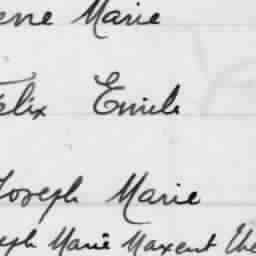 Marie
Felix Emile
Joseph Marie
eph Marie Maxent